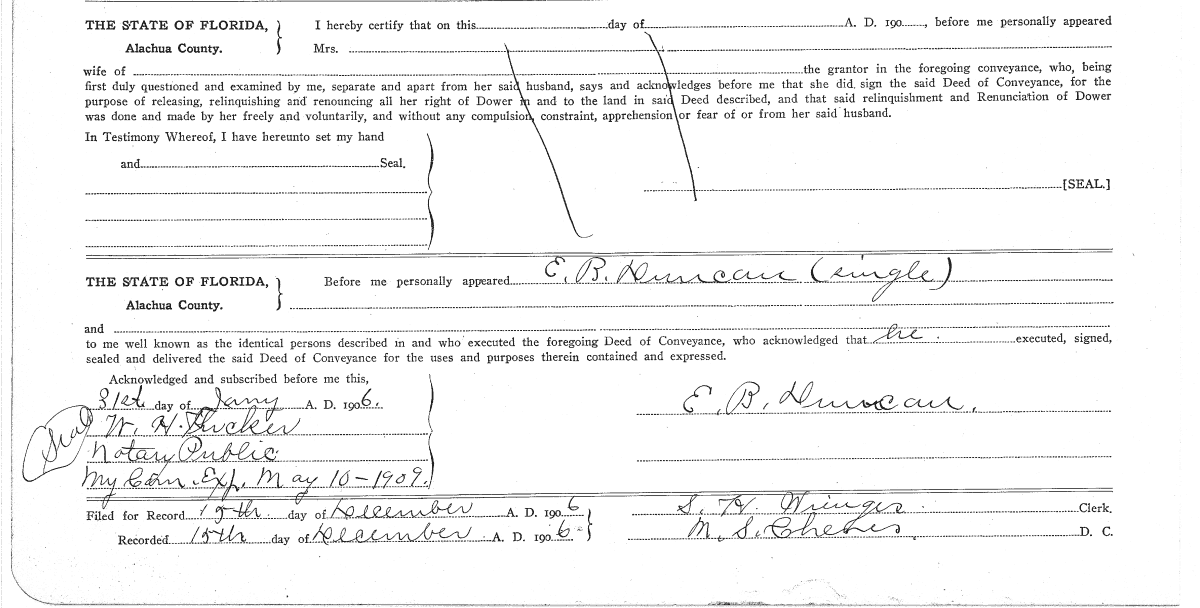 THE STATE OF FLORIDA, I hereby certify that on this day of A. D. 190 , before me personally appeared
Alachua County. Mrs.
wife of the grantor in the foregoing conveyance, who, being
first duly questioned and examined by me, separate and apart from her said husband, says and acknowledges before me that she did sign the said Deed of Conveyance, for the
purpose of releasing, relinquishing and renouncing all her right of Dower in and to the land in said Deed described, and that said relinquishment and Renunciation of Dower
was done and made by her freely and voluntarily, and without any compulsion, constraint, apprehension or fear of or from her said husband.
In Testimony Whereof, I have hereunto set my hand
and Seal.
[SEAL.]
THE STATE OF FLORIDA, Before me personally appeared E. B. Duncan (single)
Alachua County.
and
to me well known as the identical persons described in and who executed the foregoing Deed of Conveyance, who acknowledged that he executed, signed,
sealed and delivered the said Deed of Conveyance for the uses and purposes therein contained and expressed.
Acknowledged and subscribed before me this,
31st day of Jany A. D. 1906. E. B. Duncan.
Seal W. H.
Notary Public
My Com. Exp. May 10-1909.
Filed for Record 15th day of December A. D. 190 6 S. H. Wienges Clerk.
Recorded 15th day of December A. D. 190 6 M. S. Cheves D. C.